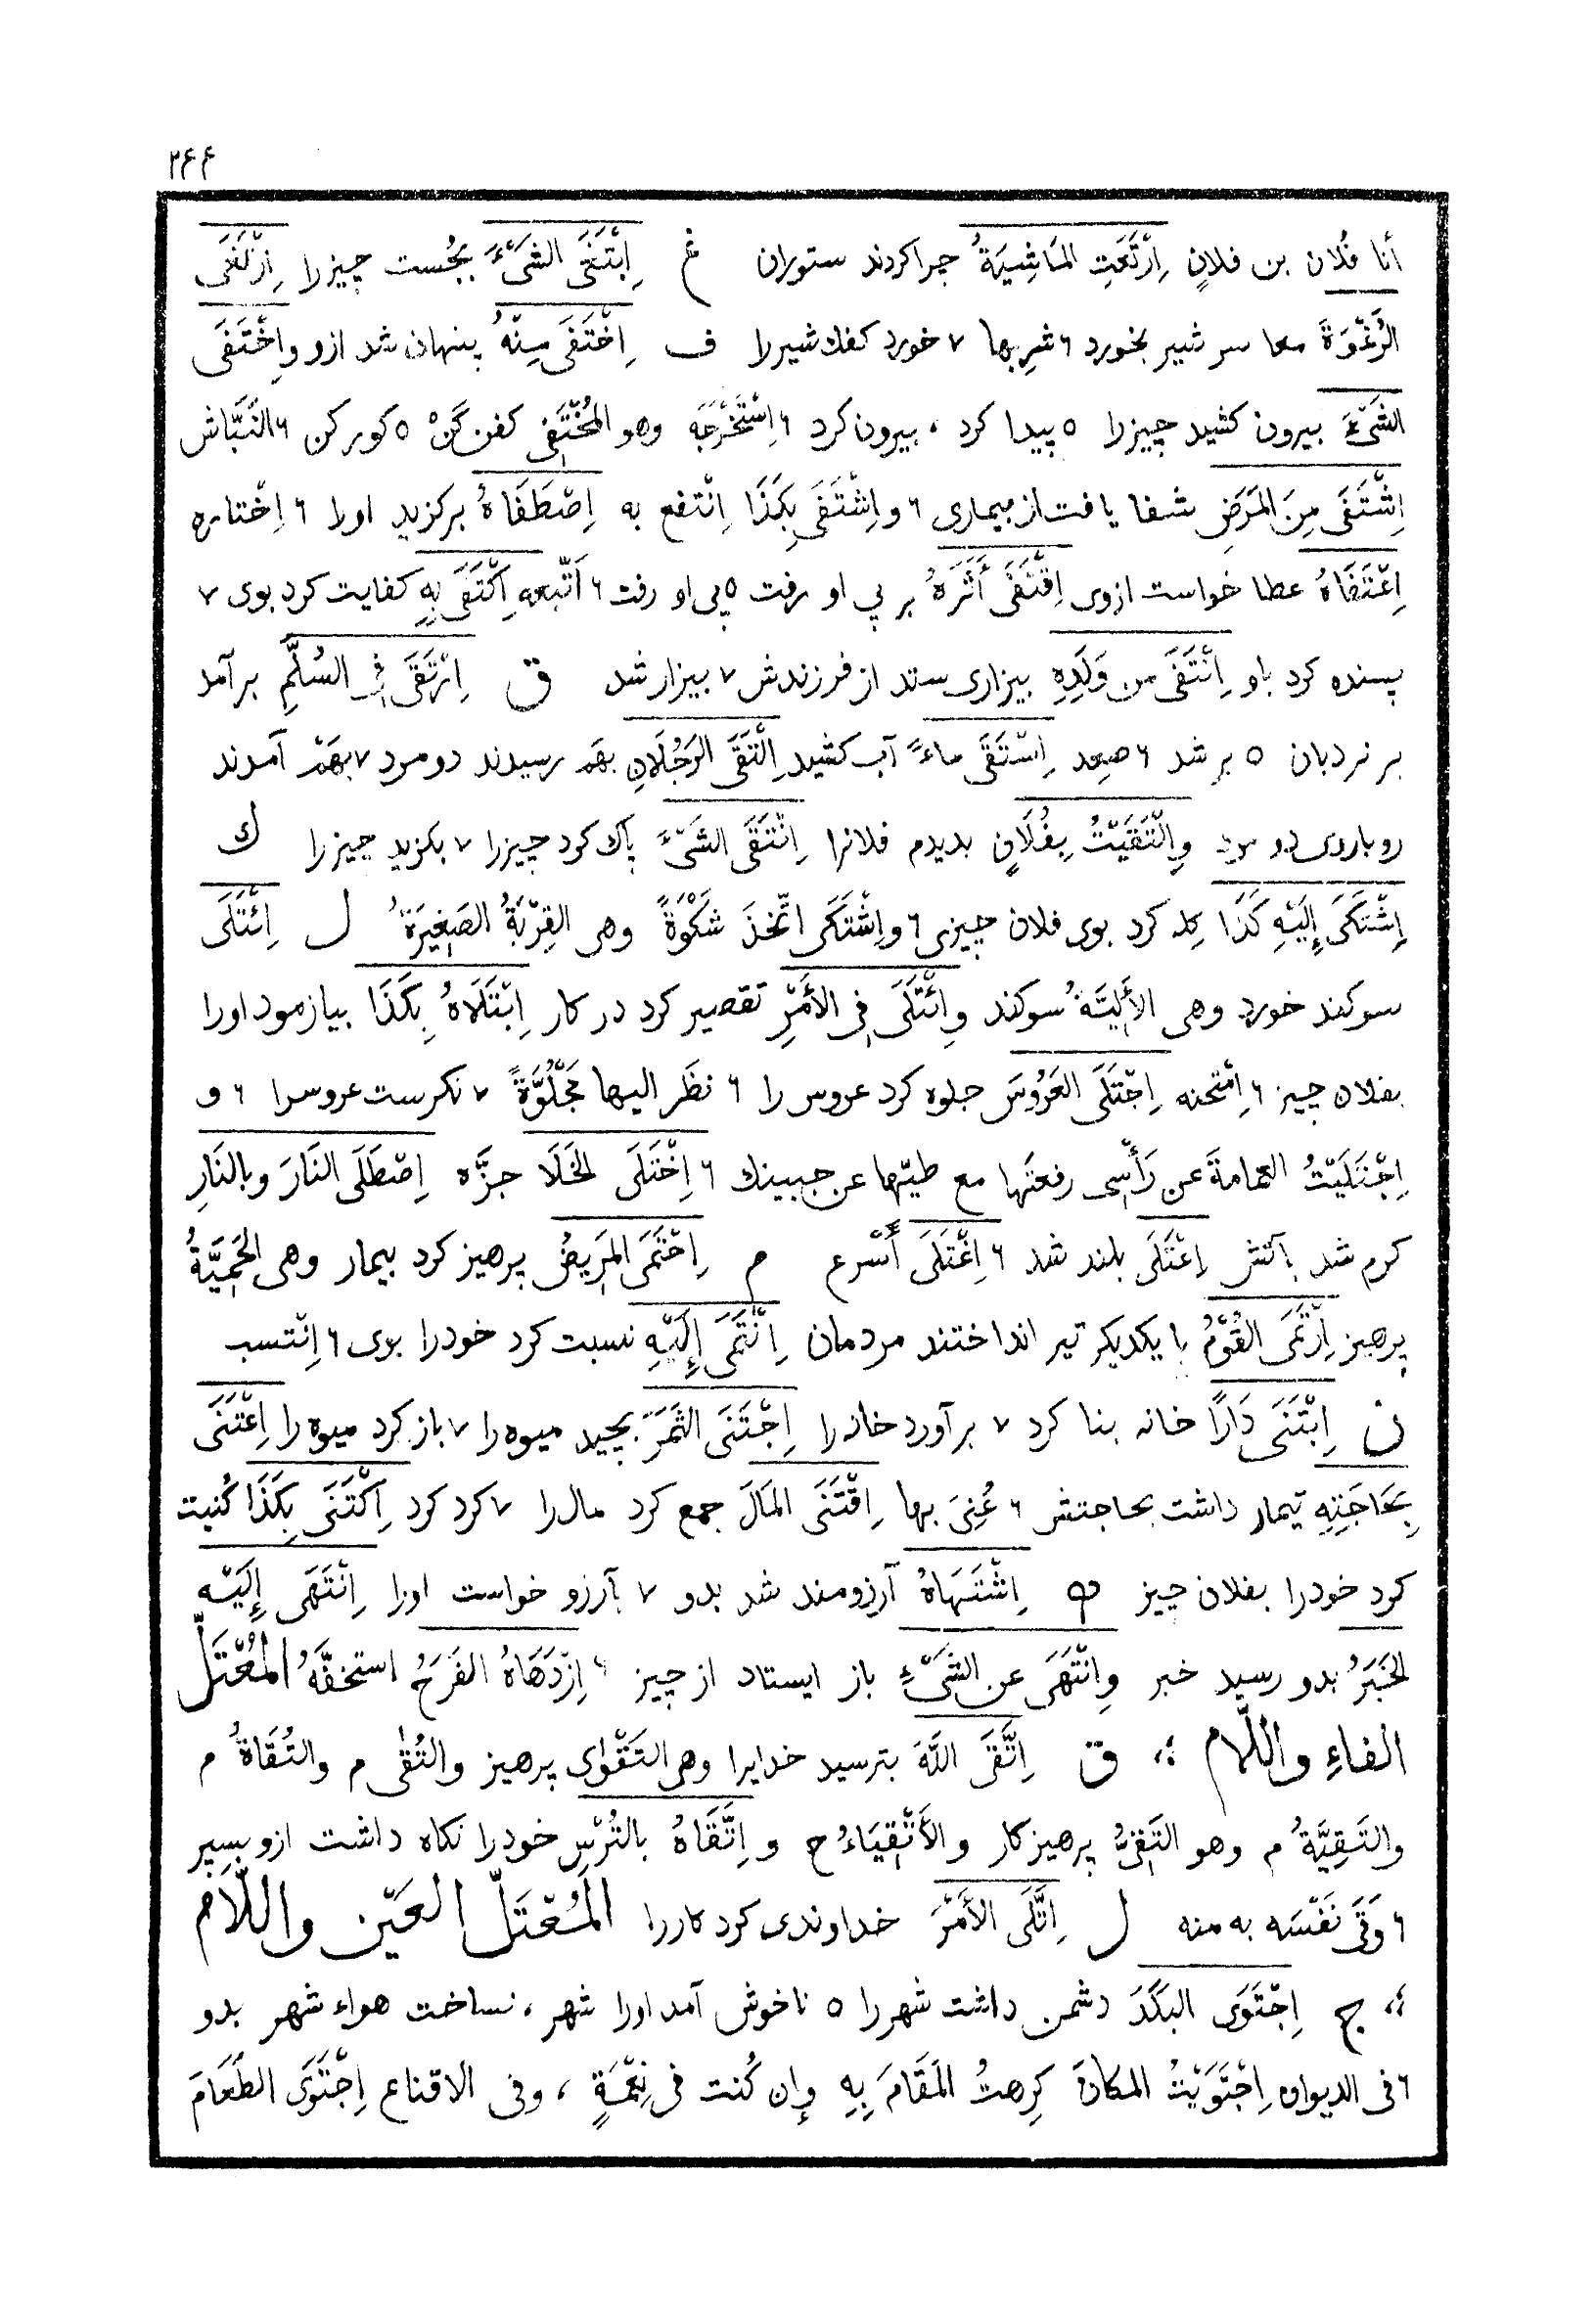 ۲۴۴
أنا فُلان بن فلانٍ اِرْتَعَتِ المَاشِيَةُ چرا كردند ستوران غ اِبْتَغَى الشَيْءَ بجُست چيز را اِرْتَغَى
الرُغْوَةَ معا سر شير بخورد ۶ شرِبها ۷ خورد كفك شير را ف اِخْتَفَى مِنْهُ پنهان شد ازو واِخْتَفَى
الشَيْءَ بيرون كشيد چيز را ۵ پيدا كرد ، بيرون كرد ۶ اِسْتَخْرَجَه وهو المُخْتَفِي كفن كَنْ ۵ كور كن ۶ النَبَّاش
اِشْتَفَى مِنَ المَرَضِ شفا يافت از بيمارى ۶ واِشْتَفَى بِكَذَا اِنْتفع به اِصْطَفَاهُ بركزيد اورا ۶ اِخْتاره
اِعْتَفَاهُ عطا خواست ازوى اِقْتَفَى أَثَرَهُ بر پي او رفت ۵ پي او رفت ۶ اَتّبعه اِكْتَفَى بِهِ كفايت كرد بوى ۷
بسنده كرد باو اِنْتَفَى من وَلَدِهِ بيزارى ستد از فرزندش ۷ بيزار شد ق اِرْتَقَى في السُلَّمِ برآمد
بر نردبان ۵ بر شد ۶ صعِد اِسْتَقَى ماءً آب كشيد اِلْتَقَى الرَجُلَانِ بهَم رسيدند دو مرد ۷ بهَمْ آمدند
روباروى دو مرد واِلْتَقَيْتُ بِفُلَانٍ بديدم فلانرا اِنْتَقَى الشَيْءَ پاك كرد چيز را ۷ بكزيد چيز را ك
اِشْتَكَى إِلَيْهِ كَذَا كِله كرد بوى فلان چيزى ۶ واِشْتَكَى اتّخذَ شَكْوَةً وهى القِرْبَةُ الصَغِيرَةُ ل اِئْتَلَى
سوكند خورد وهى الأَلِيَّةُ سوكند واِئْتَلَى في الأَمْرِ تقصير كرد در كار اِبْتَلَاهُ بِكَذَا بيازمود اورا
بفلان چيز ۶ اِمْتحنه اِجْتَلَى العَرُوسَ جلوه كرد عروس را ۶ نظَر اليها مَجْلُوَّةً ۷ نكرست عروسرا ۶ و
اِجْتَلَيْتُ العمامةَ عن رَأْسِى رفعتَها مع طيّها عن جبينك ۶ اِخْتَلَى الخَلَا جزَّه اِصْطَلَى النَارَ وبالنَارِ
كرم شد بآتش اِعْتَلَى بلند شد ۶ اِغْتَلَى أَسْرع م اِحْتَمَى المَرِيضُ پرهيز كرد بيمار وهى الحِمْيَةُ
پرهيز اِرْتَمَى القُوْمُ با يكديكر تير انداختند مردمان اِنْتَمَى إِلَيْهِ نسبت كرد خودرا بوى ۶ اِنْتسب
ن اِبْتَنَى دَارًا خانه بنا كرد ۷ برآورد خانه را اِجْتَنَى الثَمَرَ بچيد ميوه را ۷ باز كرد ميوه را اِعْتَنَى
بِحَاجَتِهِ تيمار داشت بحاجتش ۶ عُنِىَ بها اِقْتَنَى المَالَ جمع كرد مال را ۷ كرد كرد اِكْتَنَى بِكَذَا كُنيت
كرد خودرا بفلان چيز ه اِشْتَهَاهُ آرزومند شد بدو ۷ بآرزو خواست اورا اِنْتَهَى إِلَيْهِ
الخَبَرُ بدو رسيد خبر واِنْتَهَى عن الشَيْءِ باز ايستاد از چيز ۶ اِزْدَهَاهُ الفَرَحُ استخفَّهُ المُعْتَلّ
الفاءِ واللّام ؛، ق اِتَّقَى اللّهَ بترسيد خدايرا وهى التَقْوٰى پرهيز والتُقٰى م والتُقَاةُ م
والتَقِيَّةُ م وهو التَقِيُّ پرهيزكار والأَتْقِيَاءُ ج واِتَّقَاهُ بالتُرْسِ خودرا نكاه داشت ازو بسپر
۶ وَقَى نَفْسَه به منه ل اِتَّلَى الأَمْرَ خداوندى كرد كاررا المُعْتَلّ العَيْن واللّام
؛، ج اِجْتَوَى البَلَدَ دشمن داشت شهر را ۵ ناخوش آمد اورا شهر ، نساخت هواء شهر بدو
۶ فى الديوان اِجْتَوَيْتُ المكانَ كَرِهتُ المَقَامَ بِهِ وإن كُنت فى نِعْمَةٍ ، وفى الاقناع اِجْتَوَى الطَعَامَ